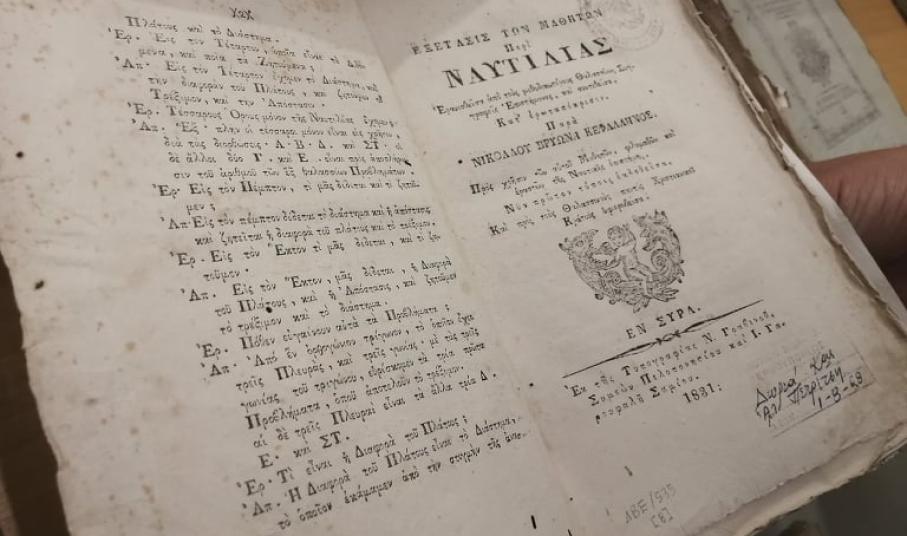 Πλάτους καὶ τὸ Διάστημα.
Ἐρ. Εἰς τὸν Τέταρτον, ὁποῖα εἶναι τὰ Δεδομένα, καὶ ποῖα τὰ Ζητούμενα;
Ἀπ. Εἰς τὸν Τέταρτον ἔχομεν τὸ Διάστημα, καὶ
τὴν διαφορὰν τοῦ Πλάτους, καὶ ζητοῦμεν τὸ
Τρέξιμον, καὶ τὴν Ἀπόστασιν.
Ἐρ. Τέσσαρους Ὅρους μόνον τῆς Ναυτιλίας ἔχομεν;
Ἀπ. Ἓξ· πλὴν οἱ τέσσαροι μόνον εἶναι εἰς χρῆσιν,
διὰ τὰς διορθώσεις· Α. Β. Δ. καὶ ΣΤ. οἱ
δὲ ἄλλοι δύο Γ. καὶ Ε. εἶναι πρὸς
σιν τοῦ ἀριθμοῦ τῶν ἓξ θαλασσίων Προβλημάτων.
Ἐρ. Εἰς τὸν Πέμπτον, τί μᾶς δίδεται καὶ τί ζητοῦ-
μεν;
Ἀπ. Εἰς τὸν πέμπτον δίδεται τὸ διάστημα καὶ ἡ ἀπόστασις
καὶ ζητεῖται ἡ διαφορὰ τοῦ πλάτους καὶ τὸ τρέξιμον.
Ἐρ. Εἰς τὸν Ἕκτον τί μᾶς δίδεται, καὶ τί ζη-
τοῦμεν.
Ἀπ. Εἰς τὸν Ἕκτον, μᾶς δίδεται, ἡ Διαφορὰ
τοῦ Πλάτους, καὶ ἡ Ἀπόστασις, καὶ ζητοῦμεν
τὸ τρέξιμον καὶ τὸ διάστημα.
Ἐρ. Πόθεν εὐγαίνουν αὐτὰ τὰ Προβλήματα;
Ἀπ. Ἀπὸ ἓν ὀρθογώνιον τρίγωνον, τὸ ὁποῖον ἔχει
τρεῖς Πλευρὰς, καὶ τρεῖς γωνίας, μὲ τὰς τρεῖς
γωνίας τοῦ τριγώνου, εὑρίσκομεν τὰ τρία πρῶτα
Προβλήματα, ὁποῦ ἀποτελοῦν τὸ τρέξιμον.
αἱ δὲ τρεῖς Πλευραὶ εἶναι τὰ ἄλλα τρία Δ.
Ε. καὶ ΣΤ.
Ἐρ. Τί εἶναι ἡ Διαφορὰ τοῦ Πλάτους;
Ἀπ. Ἡ Διαφορὰ τοῦ Πλάτους εἶναι τὸ Διάστημα,
τὸ ὁποῖον ἐκάμαμεν ἀπὸ τὴν στιγμὴν τῆς
ΕΞΕΤΑΣΙΣ ΤΩΝ ΜΑΘΗΤΩΝ
Περὶ
ΝΑΥΤΙΛΙΑΣ
Ἐρανισθεῖσα ἀπὸ τοὺς Θαλασσίους Συγ-
γραφεῖς Ἐπιστήμονας, καὶ
Κατ' ἐρωταπόκρισιν.
Παρὰ
ΝΙΚΟΛΑΟΥ ΠΡΥΩΝΑ ΚΕΦΑΛΛΗΝΟΣ.
Πρὸς χρῆσιν τῶν αὐτοῦ Μαθητῶν, φιλομαθῶν καὶ
ἐραστῶν τῆς Ναυτικῆς ἐπιστήμης.
Νῦν πρῶτον τύποις ἐκδοθεῖσα.
Καὶ πρὸς τοὺς Θαλασσινοὺς παντὸς Χριστιανικοῦ
Κράτους ἀφιερωθεῖσα.
ΕΝ ΣΥΡΑ.
Ἐκ τῆς Τυπογραφίας Ν.
Πελοποννησίου καὶ Ι. Γα-
Σπαρίου.
1831:
Δωρεά Και
Αλ Πετρίτση
1-8-68
ΛΒΕ/535
[8]